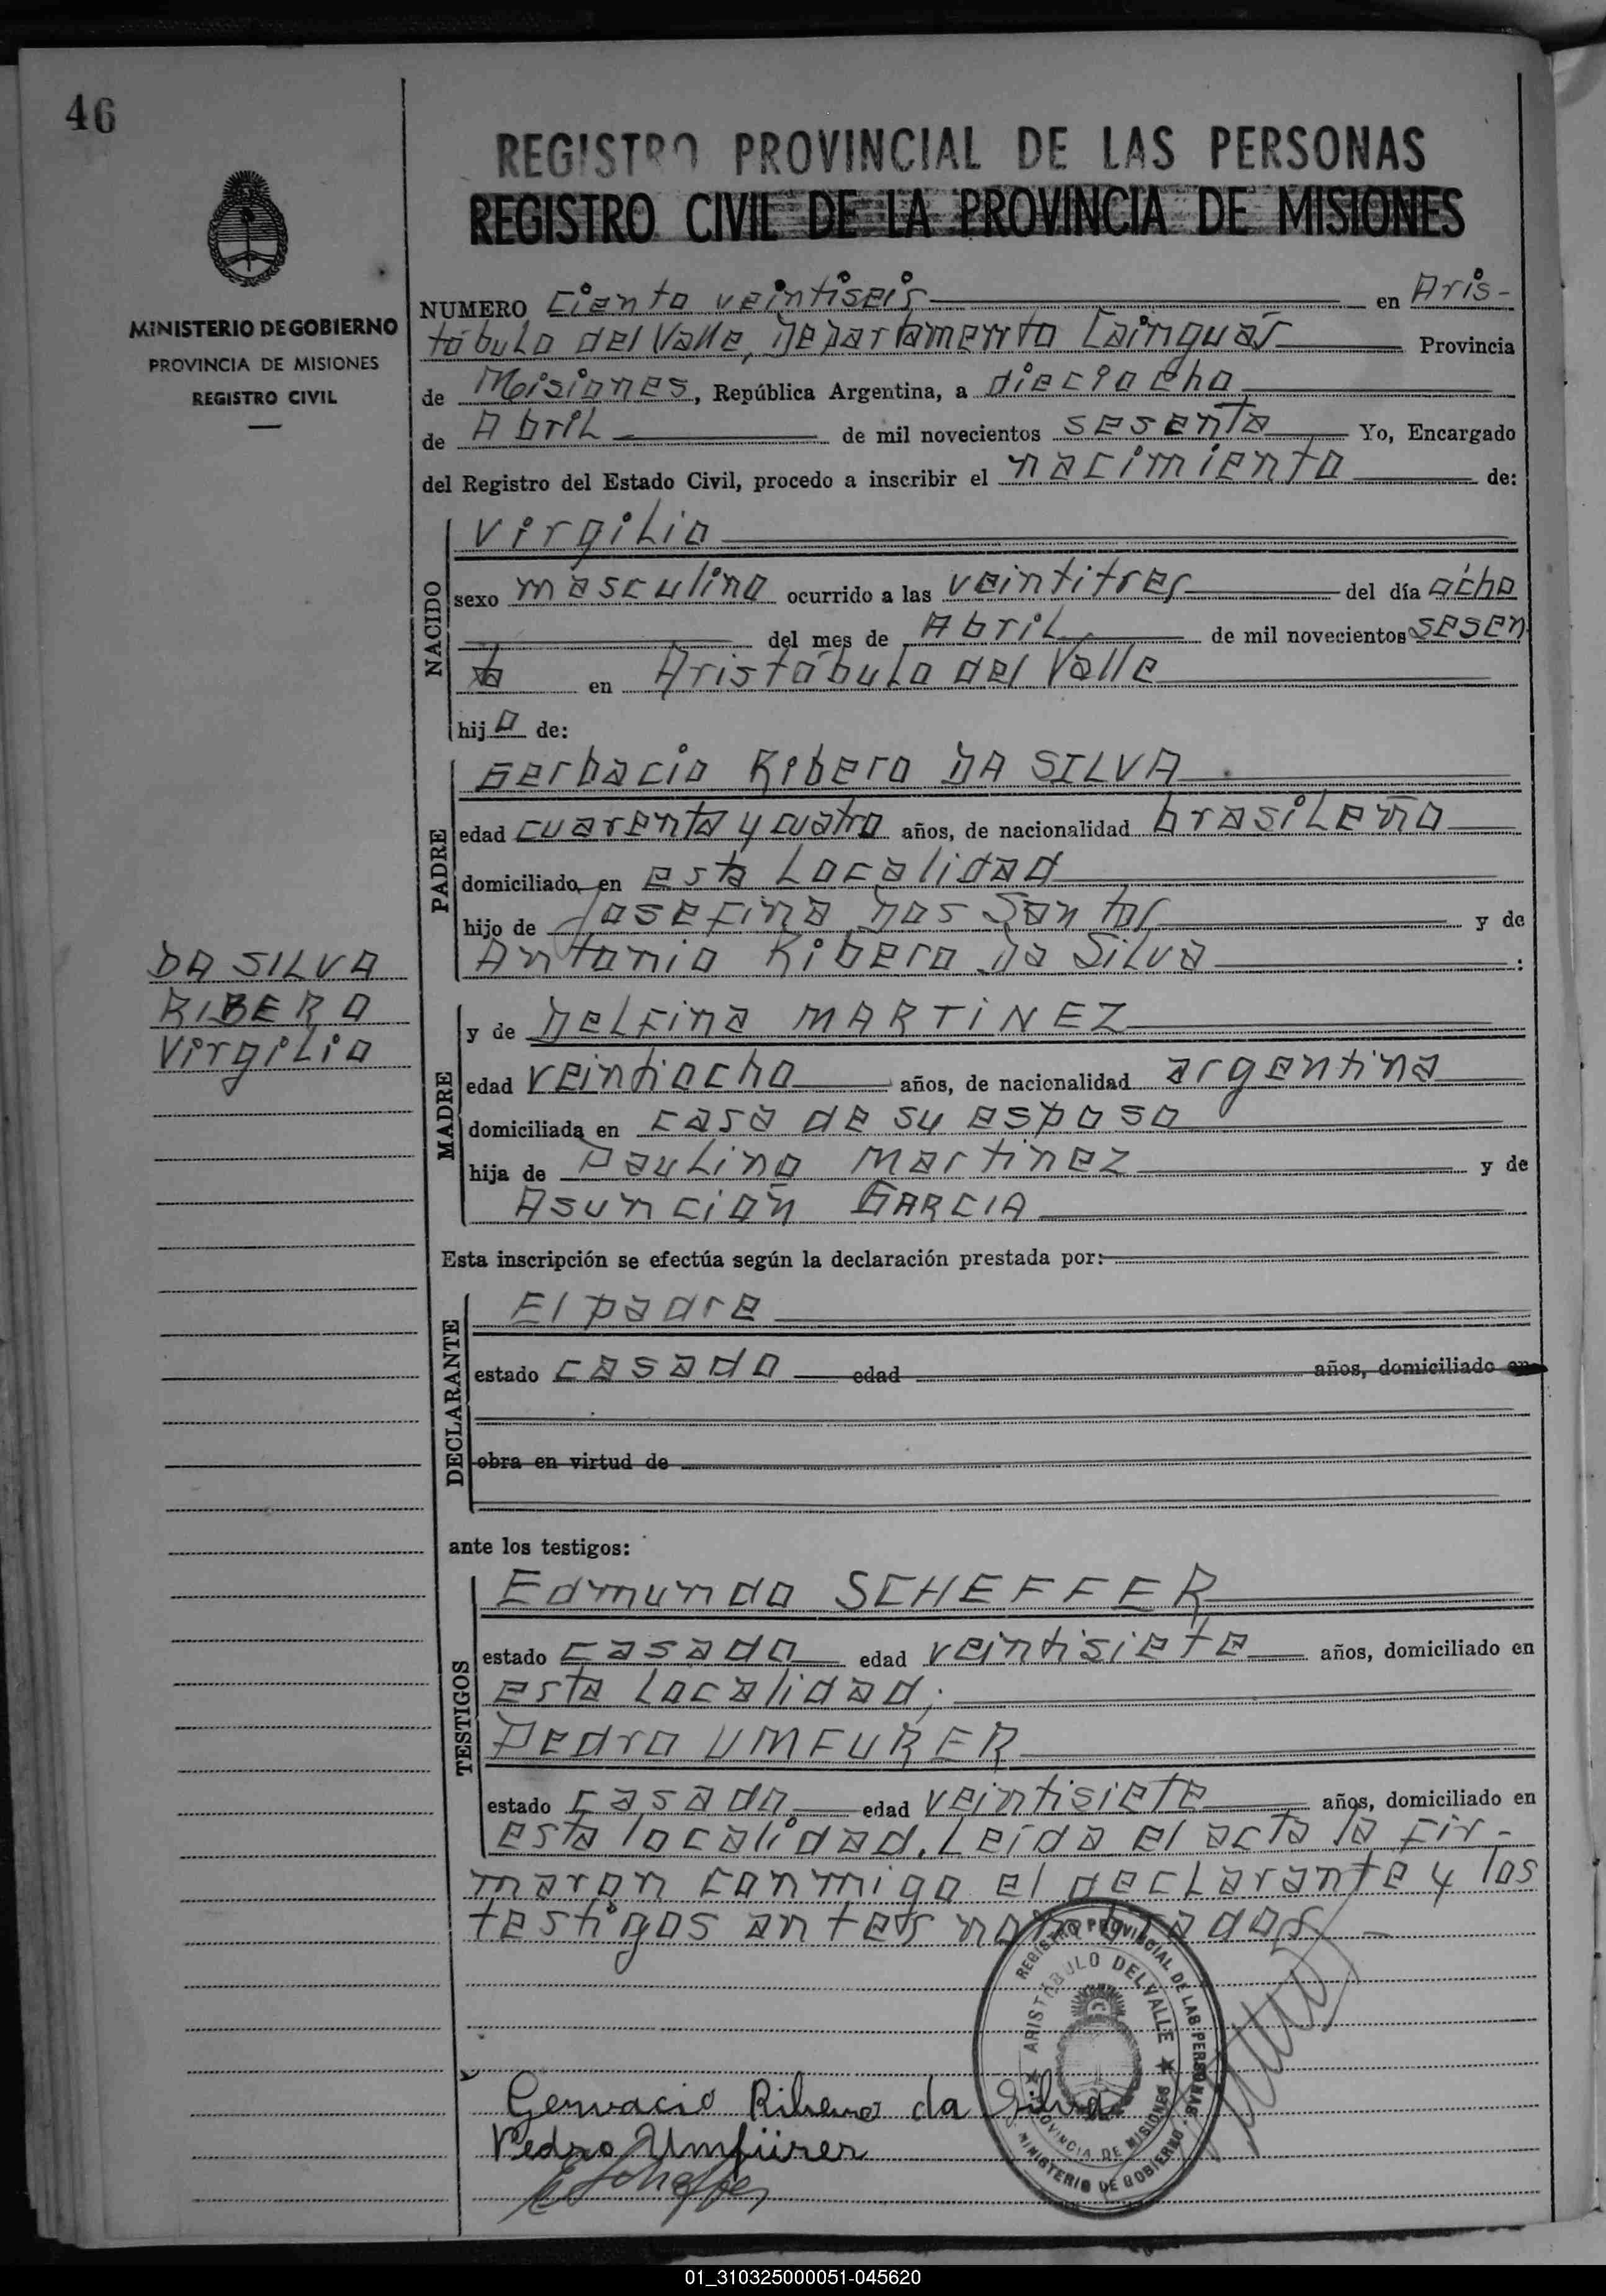 46
REGISTRO PROVINCIAL DE LAS PERSONAS
REGISTRO CIVIL DE LA PROVINCIA DE MISIONES
MINISTERIO DE GOBIERNO
PROVINCIA DE MISIONES
REGISTRO CIVIL
NUMERO Ciento veintiseis en Aris-
tóbulo del Valle, Departamento Cainguás Provincia
de Misiones, República Argentina, a dieciocho
de Abril de mil novecientos sesenta Yo, Encargado
del Registro del Estado Civil, procedo a inscribir el nacimiento de:
NACIDO
Virgilio
sexo masculino ocurrido a las veintitres del día ocho
del mes de Abril de mil novecientos sesen
ta en Aristóbulo del Valle
hijo de:
PADRE
Gerbacio Ribero DA SILVA
edad cuarenta y cuatro años, de nacionalidad brasileño
domiciliado en esta Localidad
hijo de Josefina Dos Santos y de
Antonio Ribero Da Silva :
DA SILVA
RIBERO
Virgilio
MADRE
y de Delfina MARTINEZ
edad veintiocho años, de nacionalidad argentina
domiciliada en casa de su esposo
hija de Paulino Martinez y de
Asunción GARCIA
Esta inscripción se efectúa según la declaración prestada por:
DECLARANTE
El padre
estado casado edad años, domiciliado en
obra en virtud de
ante los testigos:
TESTIGOS
Edmundo SCHEFFER
estado casado edad veintisiete años, domiciliado en
esta Localidad;
Pedro UMFURER
estado casado edad veintisiete años, domiciliado en
esta localidad. Leída el acta la fir-
maron conmigo el declarante y los
testigos antes nombrados.-
REGISTRO PROVINCIAL DE LAS PERSONAS
ARISTÓBULO DEL VALLE
PROVINCIA DE MISIONES
MINISTERIO DE GOBIERNO
Gervacio Ribero da Silva
Pedro Umfürer
E Scheffer
01_310325000051-045620